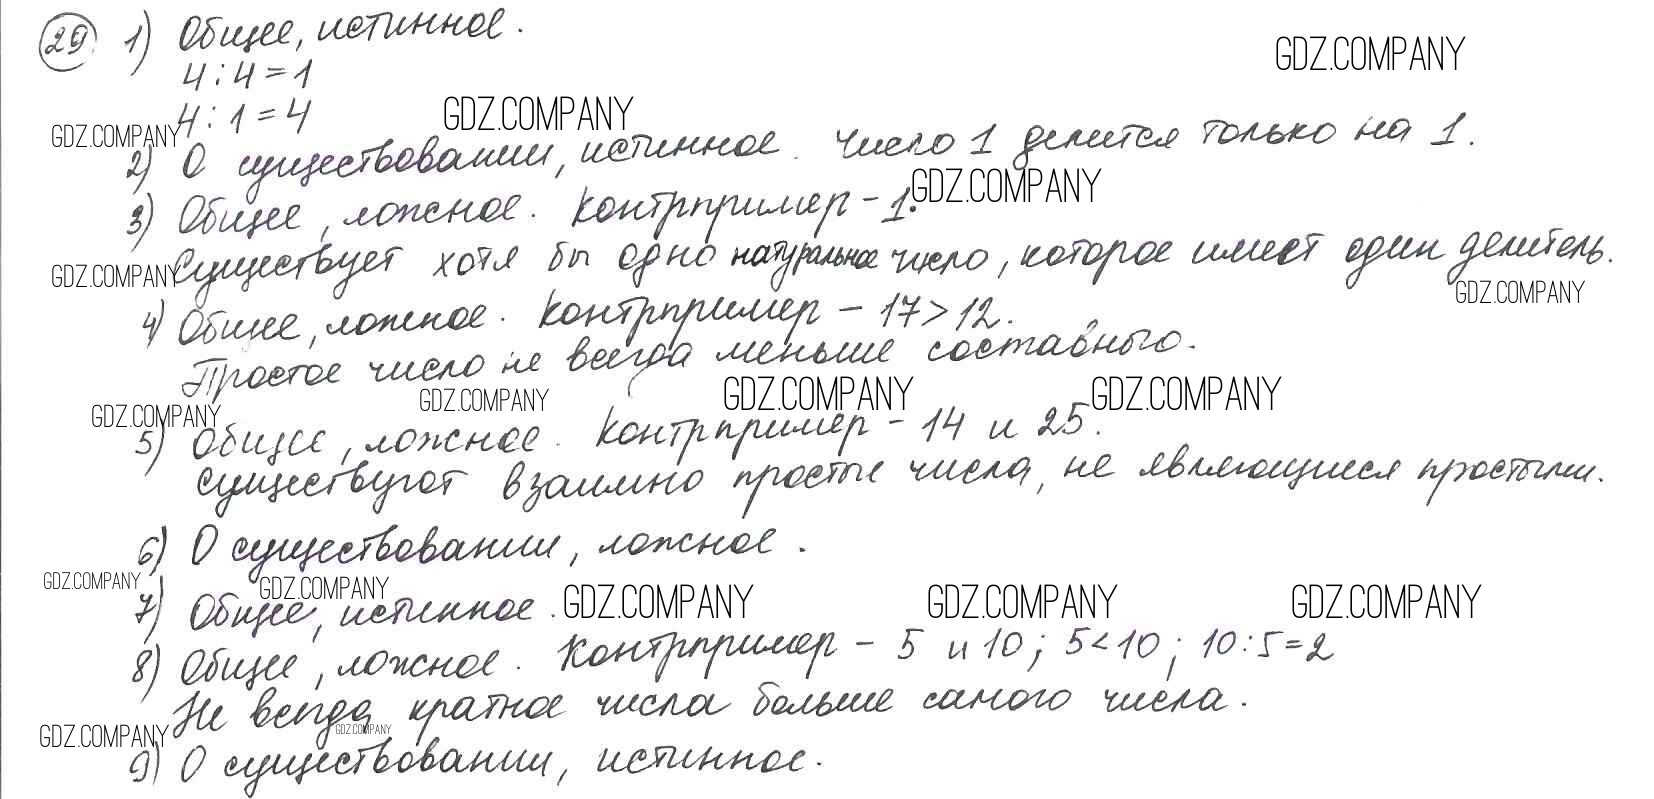 29 1) Общее, истинное.
GDZ.COMPANY
4 : 4 = 1
4 : 1 = 4
GDZ.COMPANY
GDZ.COMPANY
2) О существовании, истинное. Число 1 делится только на 1.
GDZ.COMPANY
3) Общее, ложное. Контрпример – 1.
Существует хотя бы одно натуральное число, которое имеет один делитель.
GDZ.COMPANY
GDZ.COMPANY
4) Общее, ложное. Контрпример – 17 > 12.
Простое число не всегда меньше составного.
GDZ.COMPANY GDZ.COMPANY GDZ.COMPANY GDZ.COMPANY
5) Общее, ложное. Контрпример – 14 и 25.
Существуют взаимно простые числа, не являющиеся простыми.
6) О существовании, ложное.
GDZ.COMPANY GDZ.COMPANY
7) Общее, истинное. GDZ.COMPANY GDZ.COMPANY GDZ.COMPANY
8) Общее, ложное. Контрпример – 5 и 10; 5 < 10; 10 : 5 = 2
Не всегда кратное числа больше самого числа.
GDZ.COMPANY GDZ.COMPANY
9) О существовании, истинное.